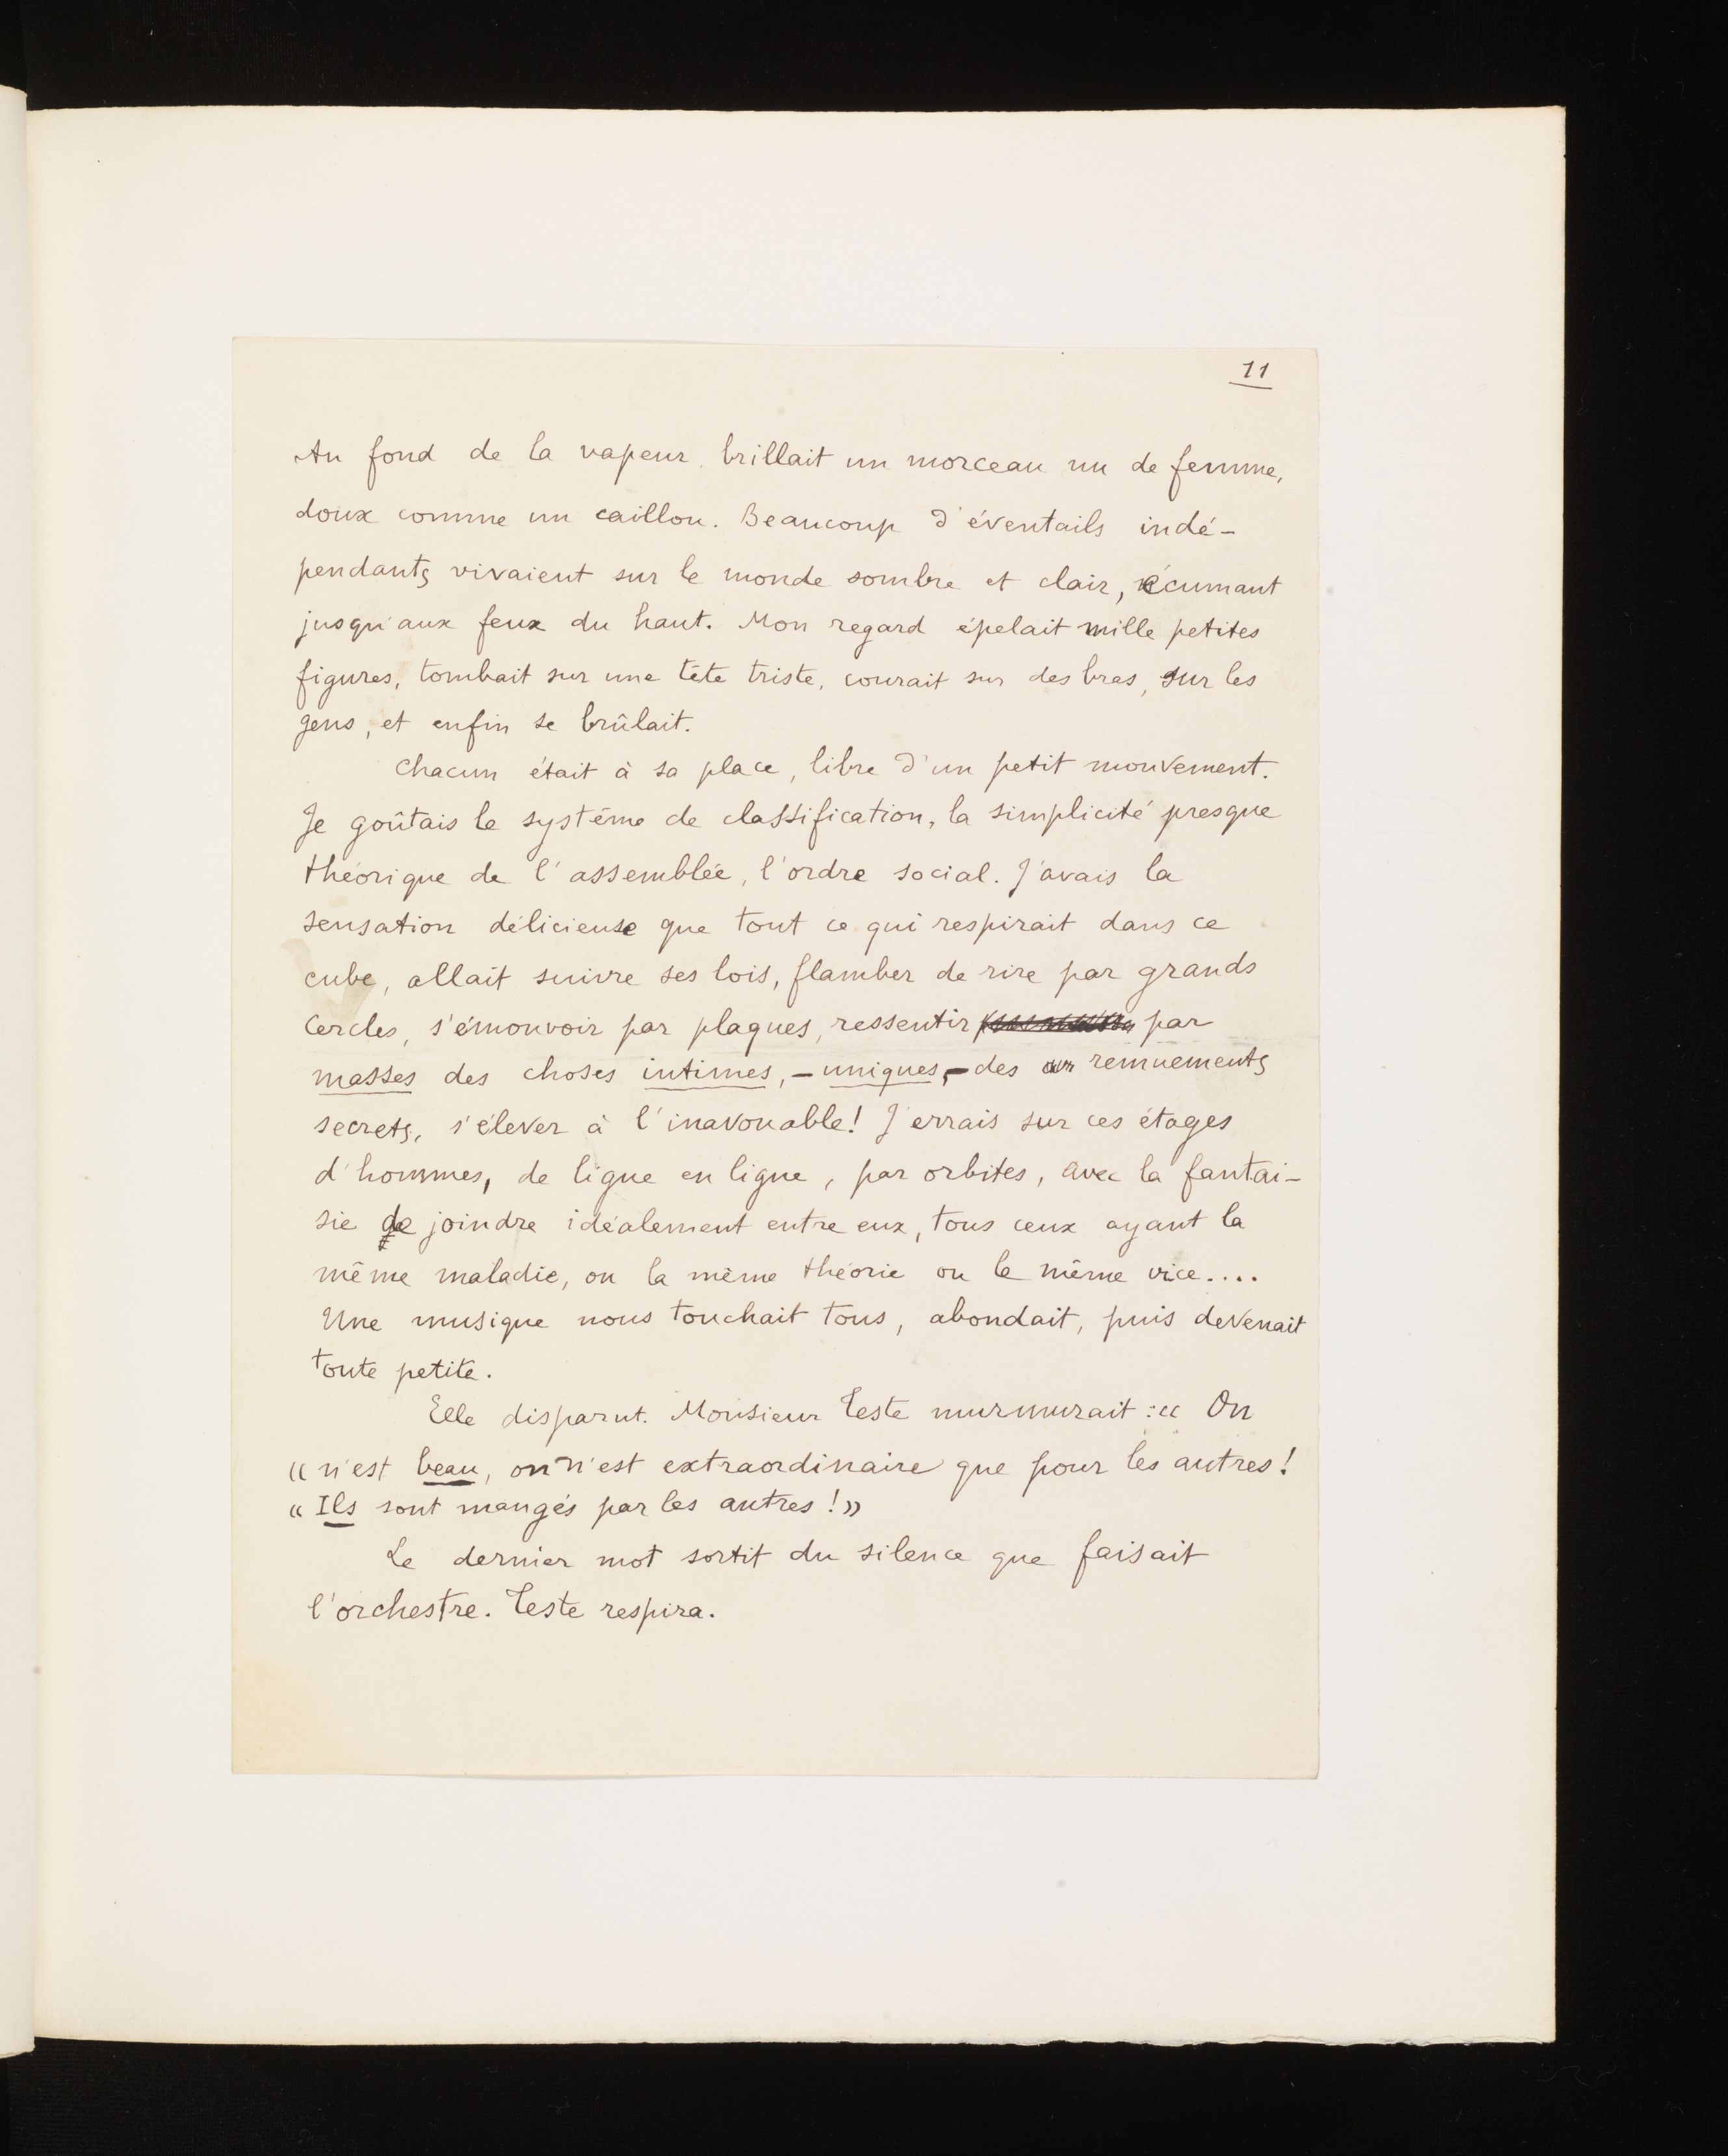 11
Au fond de la vapeur brillait un morceau nu de femme,
doux comme un caillou. Beaucoup d'éventails indé-
pendants vivaient sur le monde sombre et clair, écumant
jusqu'aux feux du haut. Mon regard épelait mille petites
figures, tombait sur une tête triste, courait sur des bras, sur les
gens, et enfin se brûlait.
Chacun était à sa place, libre d'un petit mouvement.
Je goûtais le système de classification, la simplicité presque
théorique de l'assemblée, l'ordre social. J'avais la
sensation délicieuse que tout ce qui respirait dans ce
cube, allait suivre ses lois, flamber de rire par grands
cercles, s'émouvoir par plaques, ressentir par
masses des choses intimes, – uniques, – des remuements
secrets, s'élever à l'inavouable! J'errais sur ces étages
d'hommes, de ligne en ligne, par orbites, avec la fantai-
sie de joindre idéalement entre eux, tous ceux ayant la
même maladie, ou la même théorie ou le même vice....
Une musique nous touchait tous, abondait, puis devenait
toute petite.
Elle disparut. Monsieur Teste murmurait : « On
« n'est beau, on n'est extraordinaire que pour les autres!
« Ils sont mangés par les autres! »
Le dernier mot sortit du silence que faisait
l'orchestre. Teste respira.